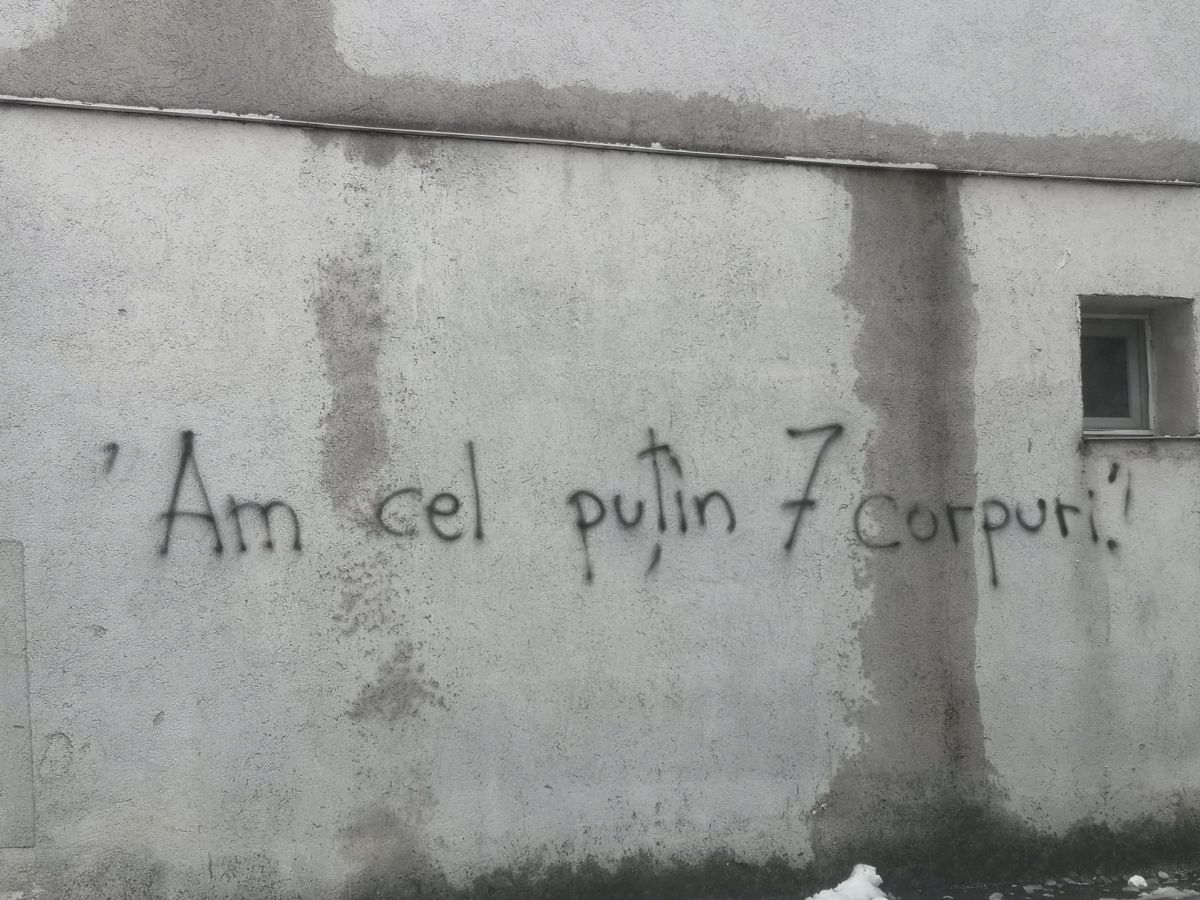 "Am cel puțin 7 corpuri."